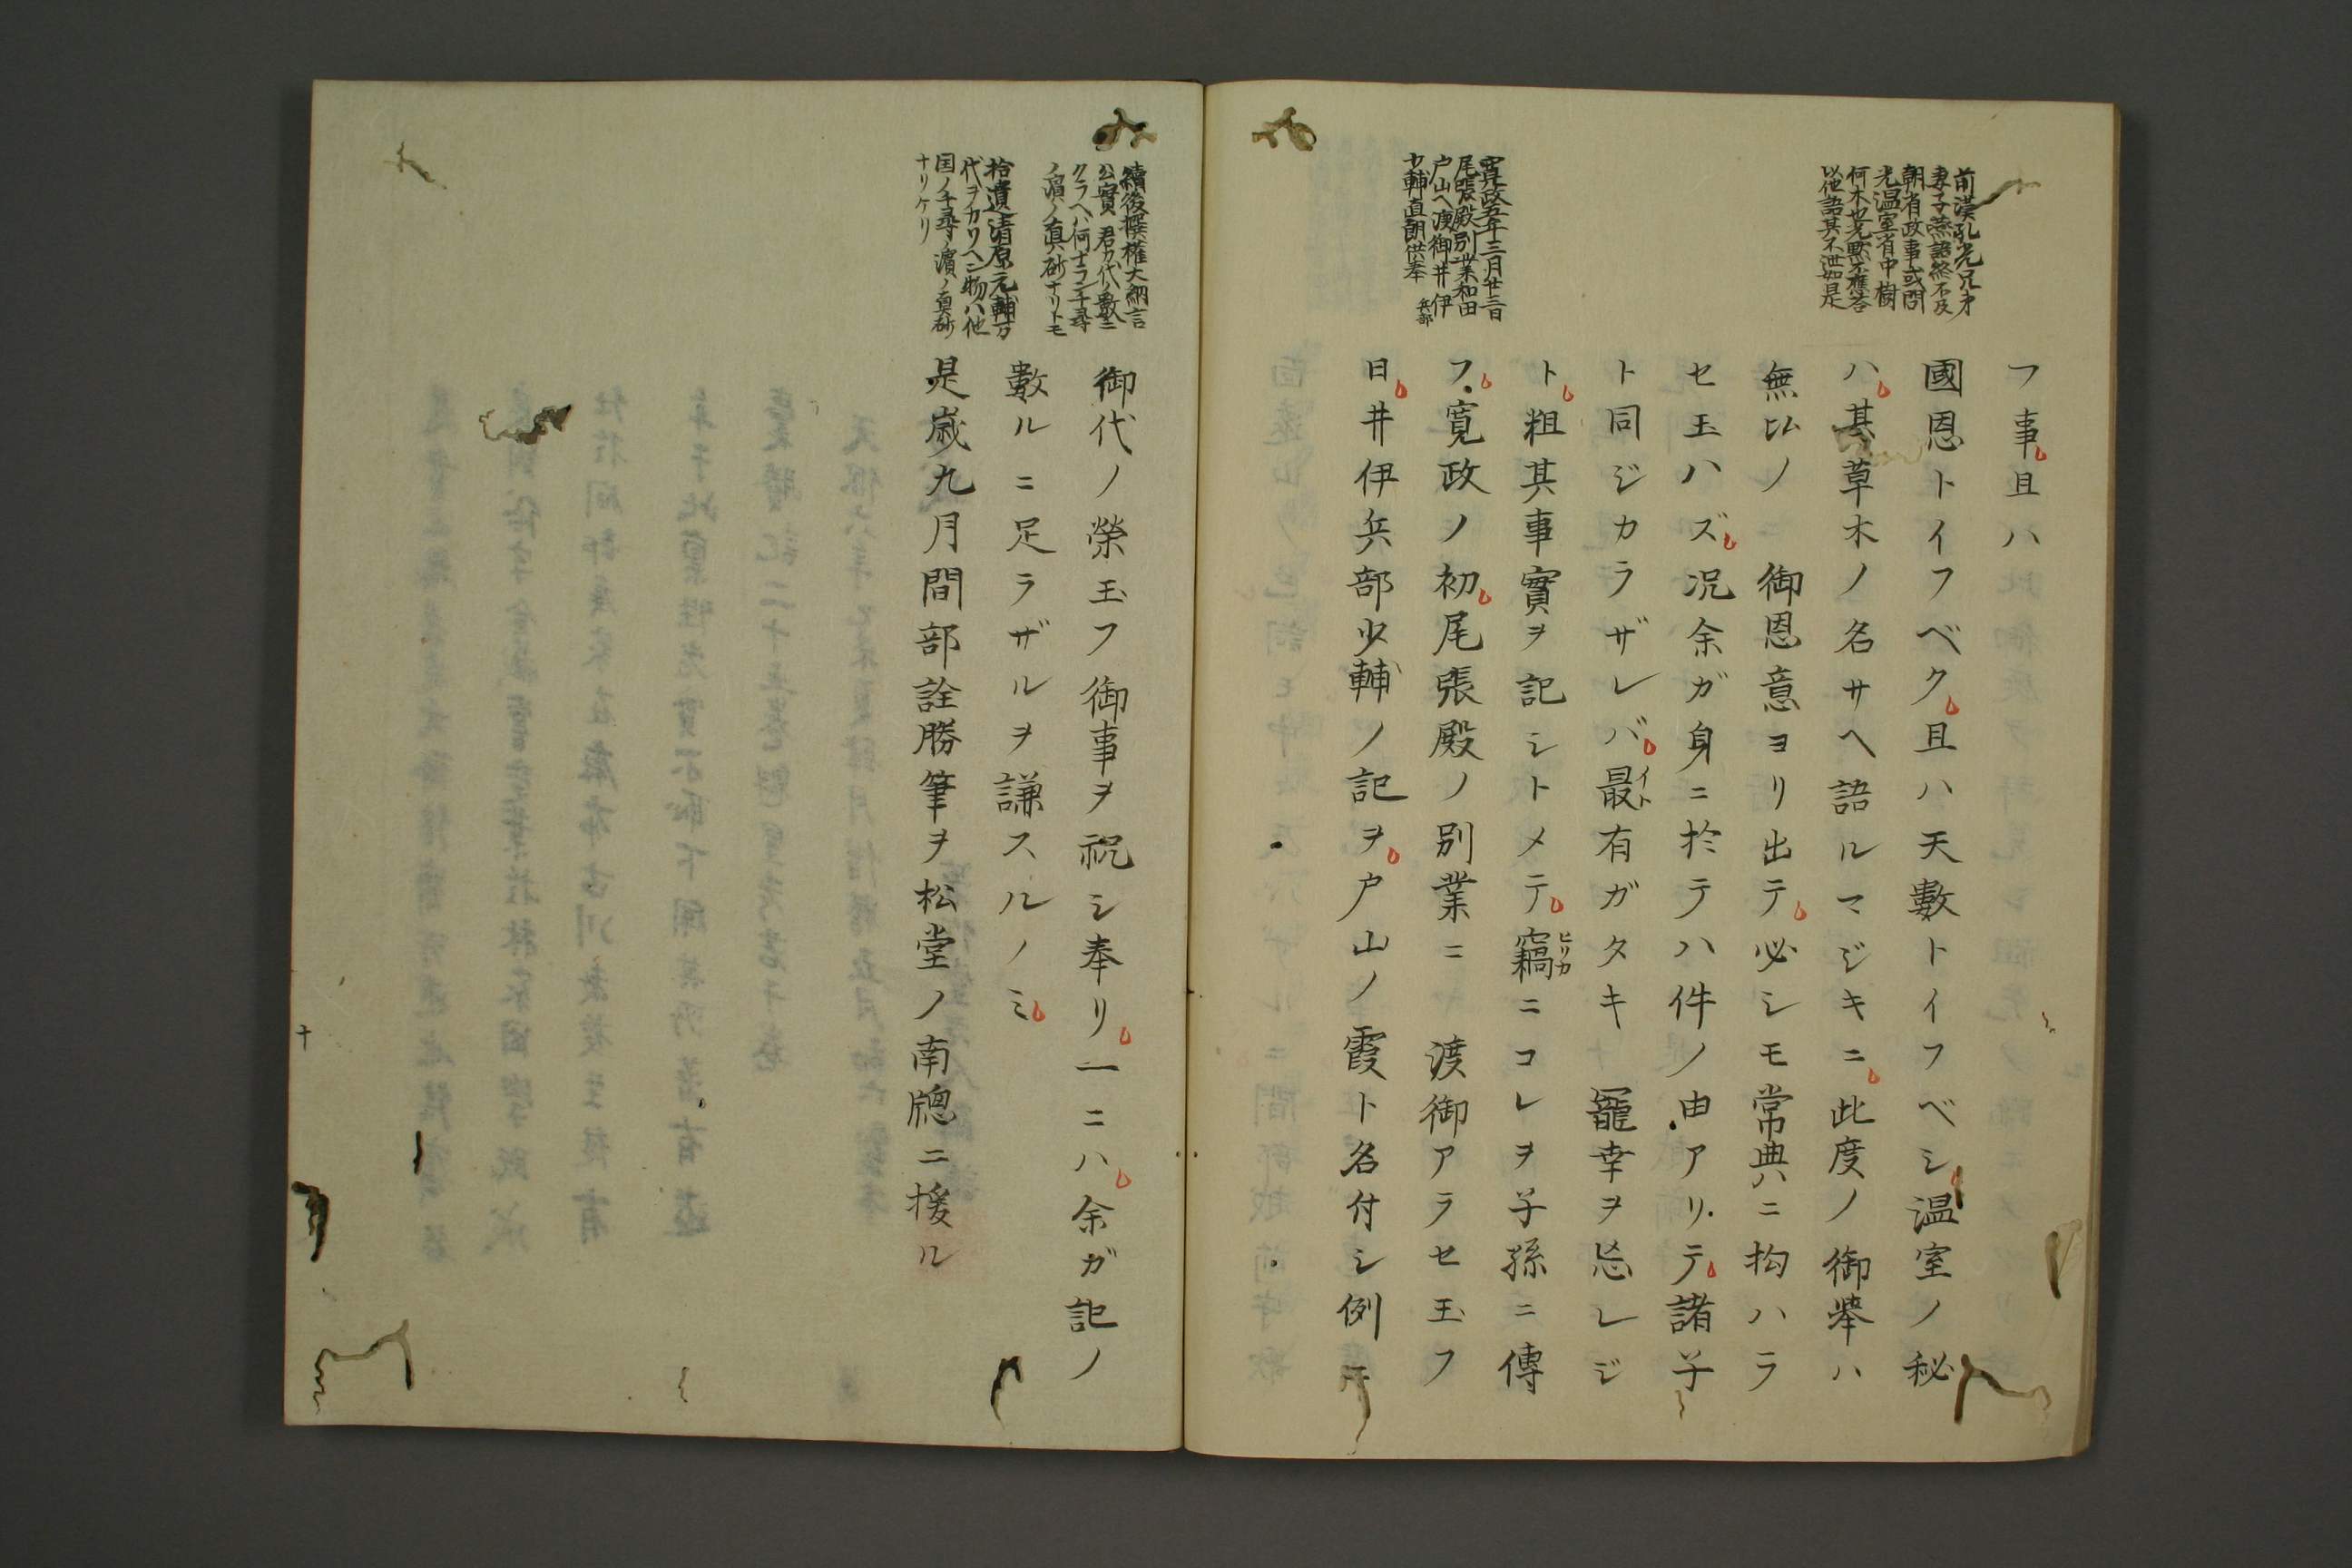 前漢孔光兄弟
妻子燕語終不及
朝省政事或問
光温室省中樹
何木也光黙不應答
以他語其不泄如是
フ事且ハ
國恩トイフベク且ハ天數トイフベシ温室ノ秘
ハ其草木ノ名サヘ語ルマジキニ此度ノ御舉ハ
無比ノ　御恩意ヨリ出テ必シモ常典ニ拘ハラ
セ玉ハズ况余ガ身ニ於テハ件ノ由アリテ諸子
ト同ジカラザレバ最イト有ガタキ　寵幸ヲ忘レジ
ト粗其事實ヲ記シトメテ竊ヒソカニコレヲ子孫ニ傳
寛政五年三月廿三日
尾張殿別業和田
戸山へ渡御井伊兵部
少輔直朗供奉
フ寛政ノ初尾張殿ノ別業ニ　渡御アラセ玉フ
日井伊兵部少輔ノ記ヲ戸山ノ霞ト名付シ例ニ
續後撰權大納言
公實　君カ代ノ數ニ
クラヘハ何ナラシ千尋
ノ濵ノ真砂ナリトモ
拾遺清原元輔万
代ヲカソヘン物ハ他
国ノ千尋ノ濵ノ真砂
ナリケリ
御代ノ榮玉フ御事ヲ祝シ奉リ一ニハ余ガ記ノ
數ルニ足ラザルヲ謙スルノミ
是歳九月間部詮勝筆ヲ松堂ノ南牕ニ援ル
十